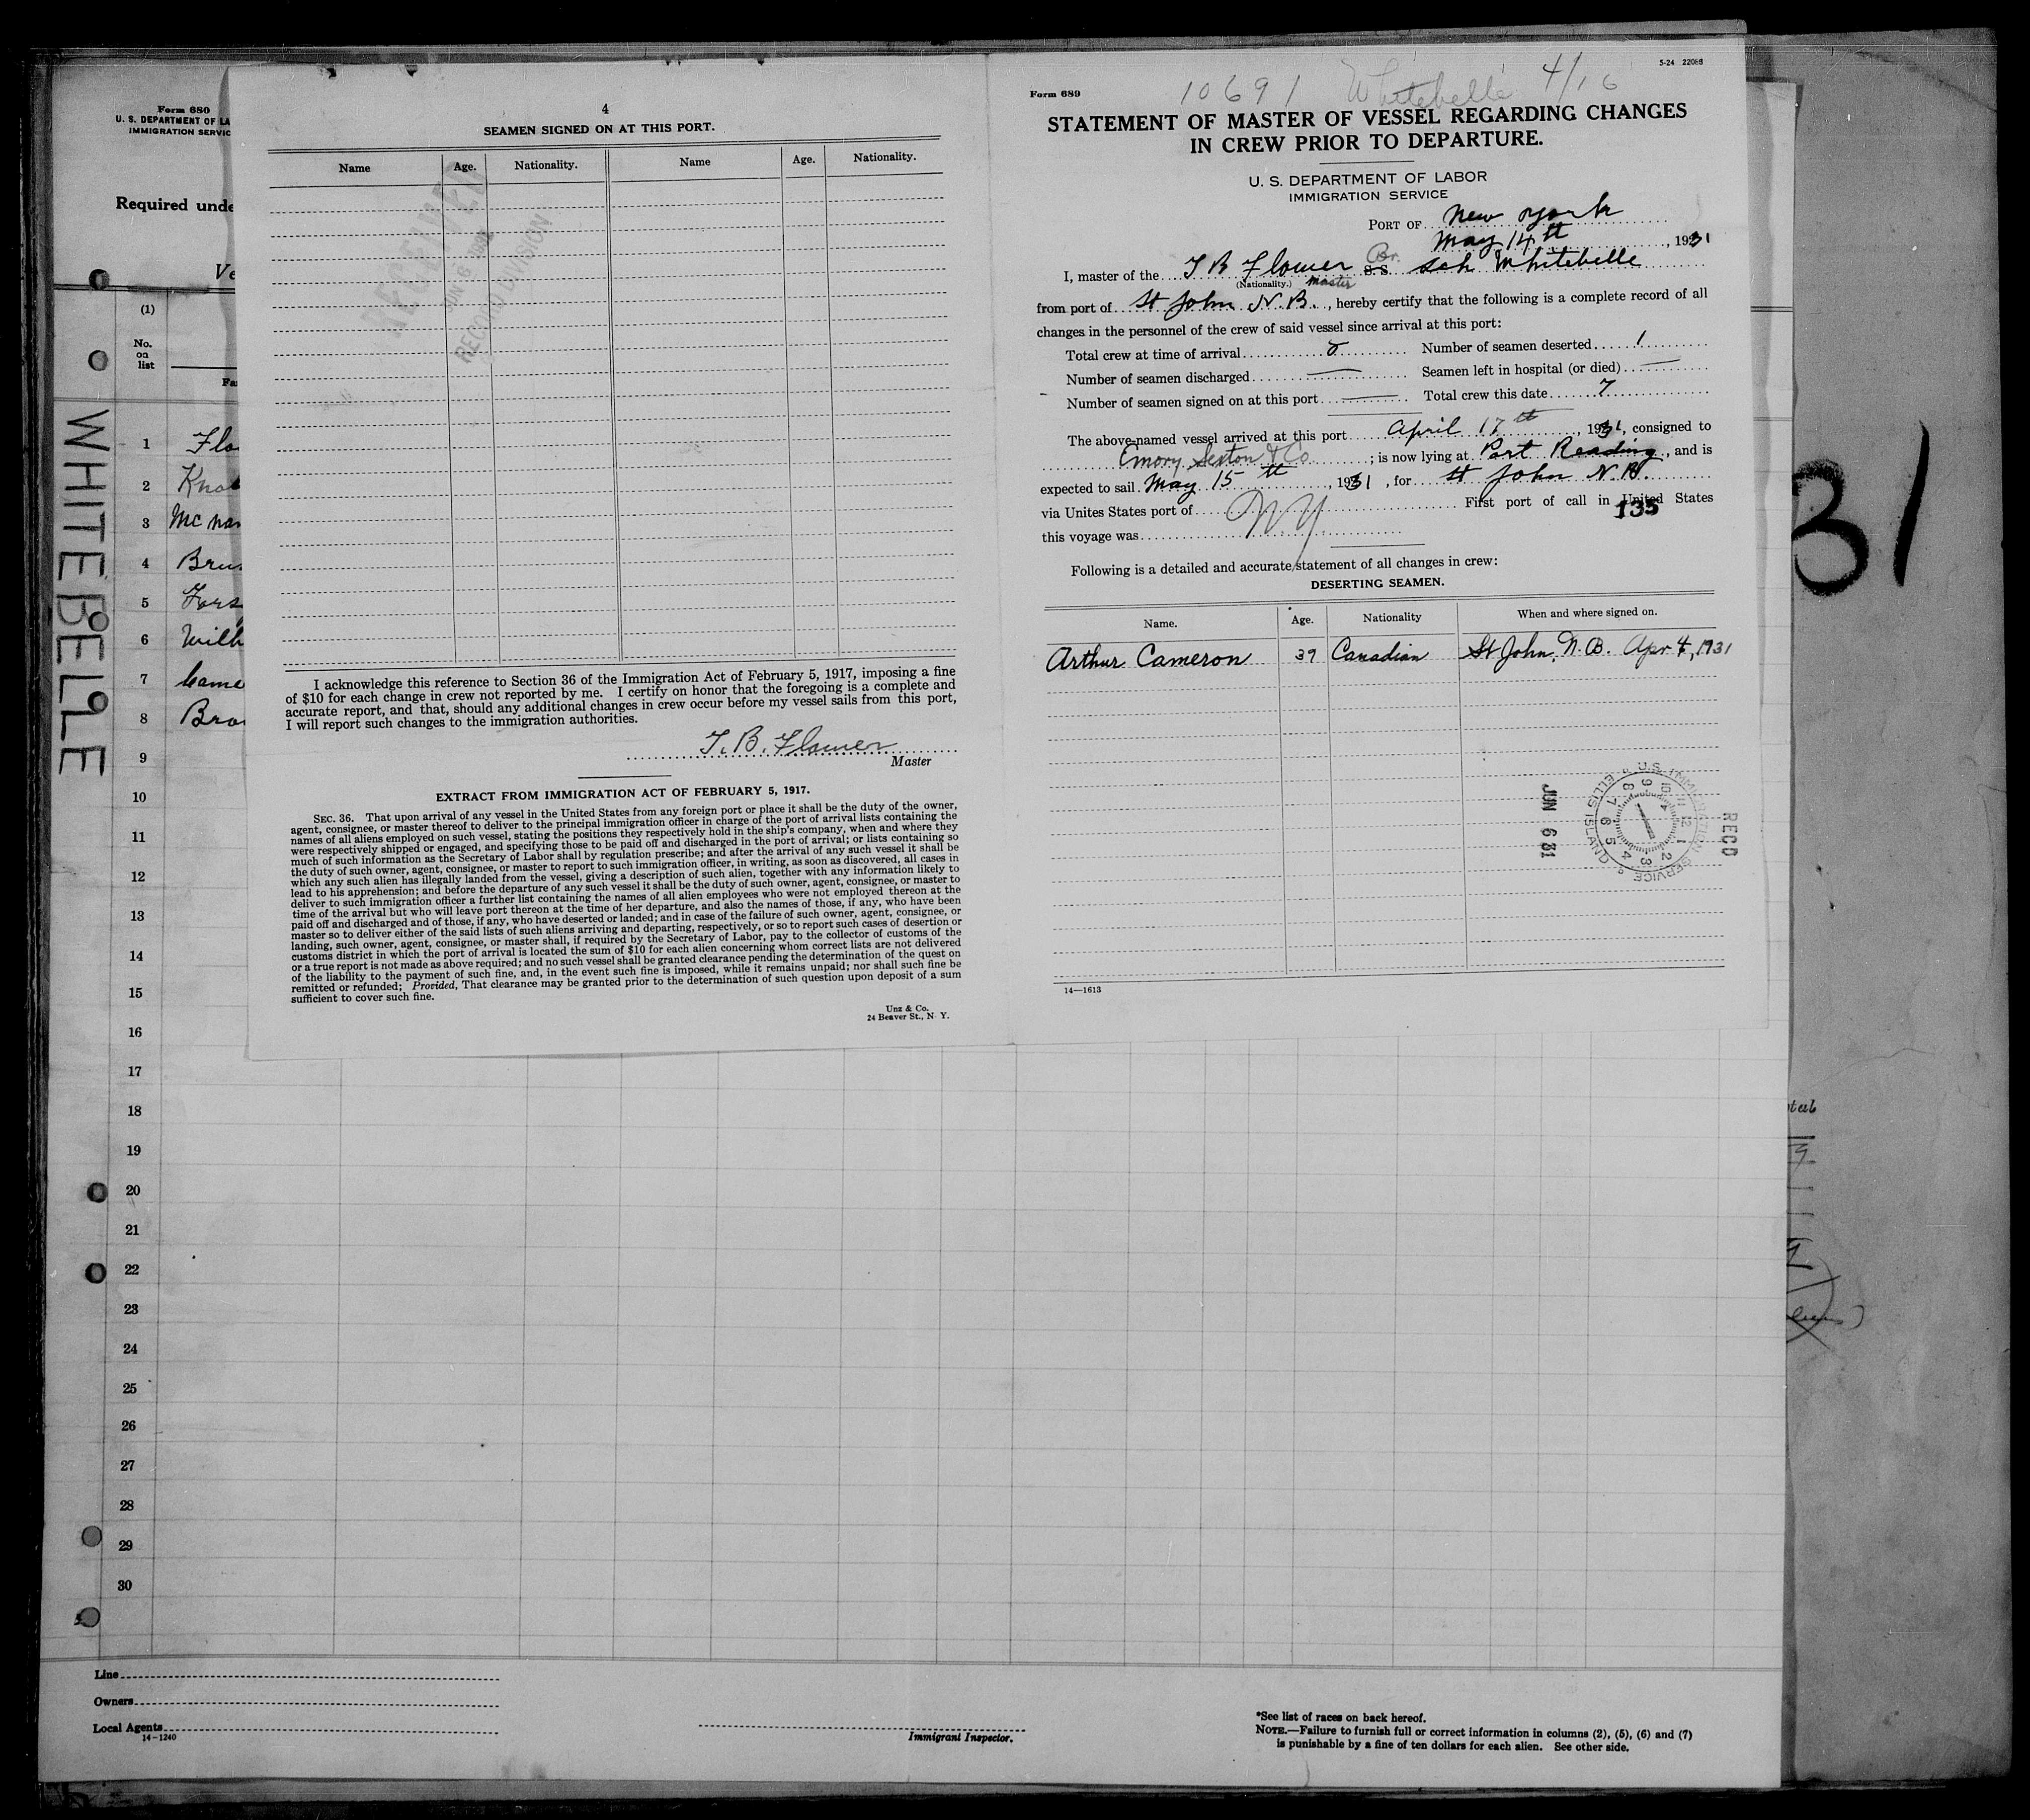 Form 680
U. S. DEPARTMENT OF LA
IMMIGRATION SERVIC
Required unde
Ve
(1)
No.
on
list
Fa
WHITEBELLE
1 Flo
2
3 Mc nar
4 Bru
5 Fors
6 Wilb
7 Came
8 Bro
9
10
11
12
13
14
15
16
17
18
19
20
21
22
23
24
25
26
27
28
29
30
Line
Owners
Local Agents
14-1240
Immigrant Inspector.
*See list of races on back hereof.
NOTE.—Failure to furnish full or correct information in columns (2), (5), (6) and (7)
is punishable by a fine of ten dollars for each alien. See other side.
4
SEAMEN SIGNED ON AT THIS PORT.
Name Age. Nationality. Name Age. Nationality.
RECEIVED
JUN 6
RECORD DIVISION
I acknowledge this reference to Section 36 of the Immigration Act of February 5, 1917, imposing a fine
of $10 for each change in crew not reported by me. I certify on honor that the foregoing is a complete and
accurate report, and that, should any additional changes in crew occur before my vessel sails from this port,
I will report such changes to the immigration authorities.
T. B. Flower
Master
EXTRACT FROM IMMIGRATION ACT OF FEBRUARY 5, 1917.
SEC. 36. That upon arrival of any vessel in the United States from any foreign port or place it shall be the duty of the owner,
agent, consignee, or master thereof to deliver to the principal immigration officer in charge of the port of arrival lists containing the
names of all aliens employed on such vessel, stating the positions they respectively hold in the ship's company, when and where they
were respectively shipped or engaged, and specifying those to be paid off and discharged in the port of arrival; or lists containing so
much of such information as the Secretary of Labor shall by regulation prescribe; and after the arrival of any such vessel it shall be
the duty of such owner, agent, consignee, or master to report to such immigration officer, in writing, as soon as discovered, all cases in
which any such alien has illegally landed from the vessel, giving a description of such alien, together with any information likely to
lead to his apprehension; and before the departure of any such vessel it shall be the duty of such owner, agent, consignee, or master to
deliver to such immigration officer a further list containing the names of all alien employees who were not employed thereon at the
time of the arrival but who will leave port thereon at the time of her departure, and also the names of those, if any, who have been
paid off and discharged and of those, if any, who have deserted or landed; and in case of the failure of such owner, agent, consignee, or
master so to deliver either of the said lists of such aliens arriving and departing, respectively, or so to report such cases of desertion or
landing, such owner, agent, consignee, or master shall, if required by the Secretary of Labor, pay to the collector of customs of the
customs district in which the port of arrival is located the sum of $10 for each alien concerning whom correct lists are not delivered
or a true report is not made as above required; and no such vessel shall be granted clearance pending the determination of the quest on
of the liability to the payment of such fine, and, in the event such fine is imposed, while it remains unpaid; nor shall such fine be
remitted or refunded; Provided, That clearance may be granted prior to the determination of such question upon deposit of a sum
sufficient to cover such fine.
Unz & Co.
24 Beaver St., N. Y.
5-24 22088
10691 Whitebelle 4/16
Form 689
STATEMENT OF MASTER OF VESSEL REGARDING CHANGES
IN CREW PRIOR TO DEPARTURE.
U. S. DEPARTMENT OF LABOR
IMMIGRATION SERVICE
PORT OF New York
May 14th, 1931
I, master of the T B Flower Br. S. S. Sch Whitebelle
(Nationality.) master
from port of St John N. B., hereby certify that the following is a complete record of all
changes in the personnel of the crew of said vessel since arrival at this port:
Total crew at time of arrival 8 Number of seamen deserted 1
Number of seamen discharged — Seamen left in hospital (or died) —
Number of seamen signed on at this port — Total crew this date 7
The above-named vessel arrived at this port April 17th, 1931, consigned to
Emory Sexton & Co; is now lying at Port Reading, and is
expected to sail May 15th, 1931, for St John N. B.
via Unites States port of First port of call in United States
135
this voyage was NY
Following is a detailed and accurate statement of all changes in crew:
DESERTING SEAMEN.
Name. Age. Nationality When and where signed on.
Arthur Cameron 39 Canadian St John, N. B. Apr 4, 1931
14—1613
RECD
U.S. IMMIGRATION SERVICE ELLIS ISLAND
JUN 6 31
31